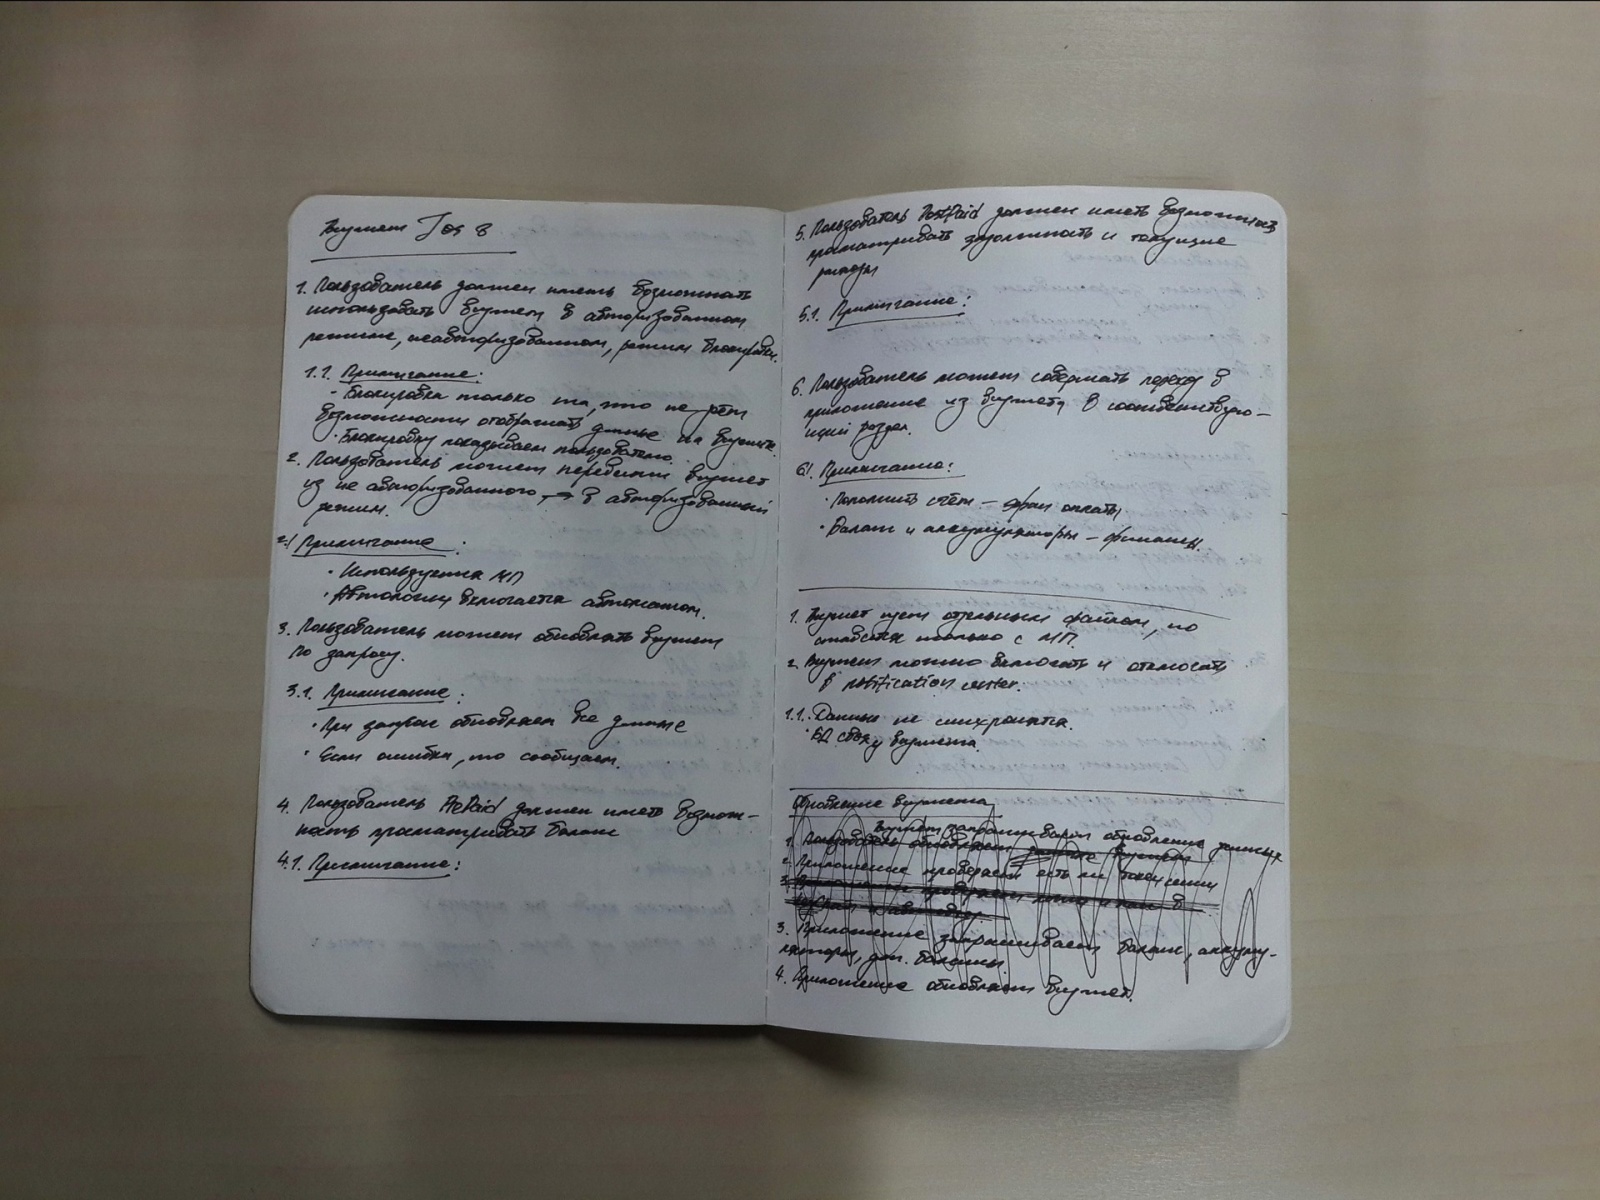 Виджет Ios 8
1. Пользователь должен иметь возможность
использовать виджет в авторизованном
режиме, неавторизованном, режим блокировки.
1.1. Примечание:
- Блокировка только та, что не даёт
возможности отображать данные на виджете.
· Блокировку показываем пользователю.
2. Пользователь может перевести виджет
из не авторизованного, → в авторизованный
режим.
2.1 Примечание:
· Используется МП
· Автологин включается автоматом.
3. Пользователь может обновлять виджет
по запросу.
3.1. Примечание:
· При запросе обновляем все данные
· Если ошибка, то сообщаем.
4. Пользователь PrePaid должен иметь возмож-
ность просматривать баланс
4.1. Примечание:
5. Пользователь PostPaid должен иметь возможность
просматривать задолжность и текущие
расходы
5.1. Примечание:
6. Пользователь может совершать переход в
приложение из виджета в соответствую-
щий раздел.
6.1 Примечание:
· Пополнить счёт – экран оплаты
· Баланс и аккумуляторы – финансы.
1. Виджет пусть отдельным файлом, но
ставится только с МП.
2. Виджет можно включать и отключать
в notification center.
1.1. · Данные не синхронятся.
· БД сбоку виджета.
Обновление виджета
Виджет запрашивает обновление данных
1. Пользователь обновляет данные виджета
2. Приложение проверяет есть ли токен сессии
3. Приложение проверяет логин и пароль в
3. Приложение запрашивает баланс, аккуму-
ляторы, доп. балансы.
4. Приложение обновляет виджет.